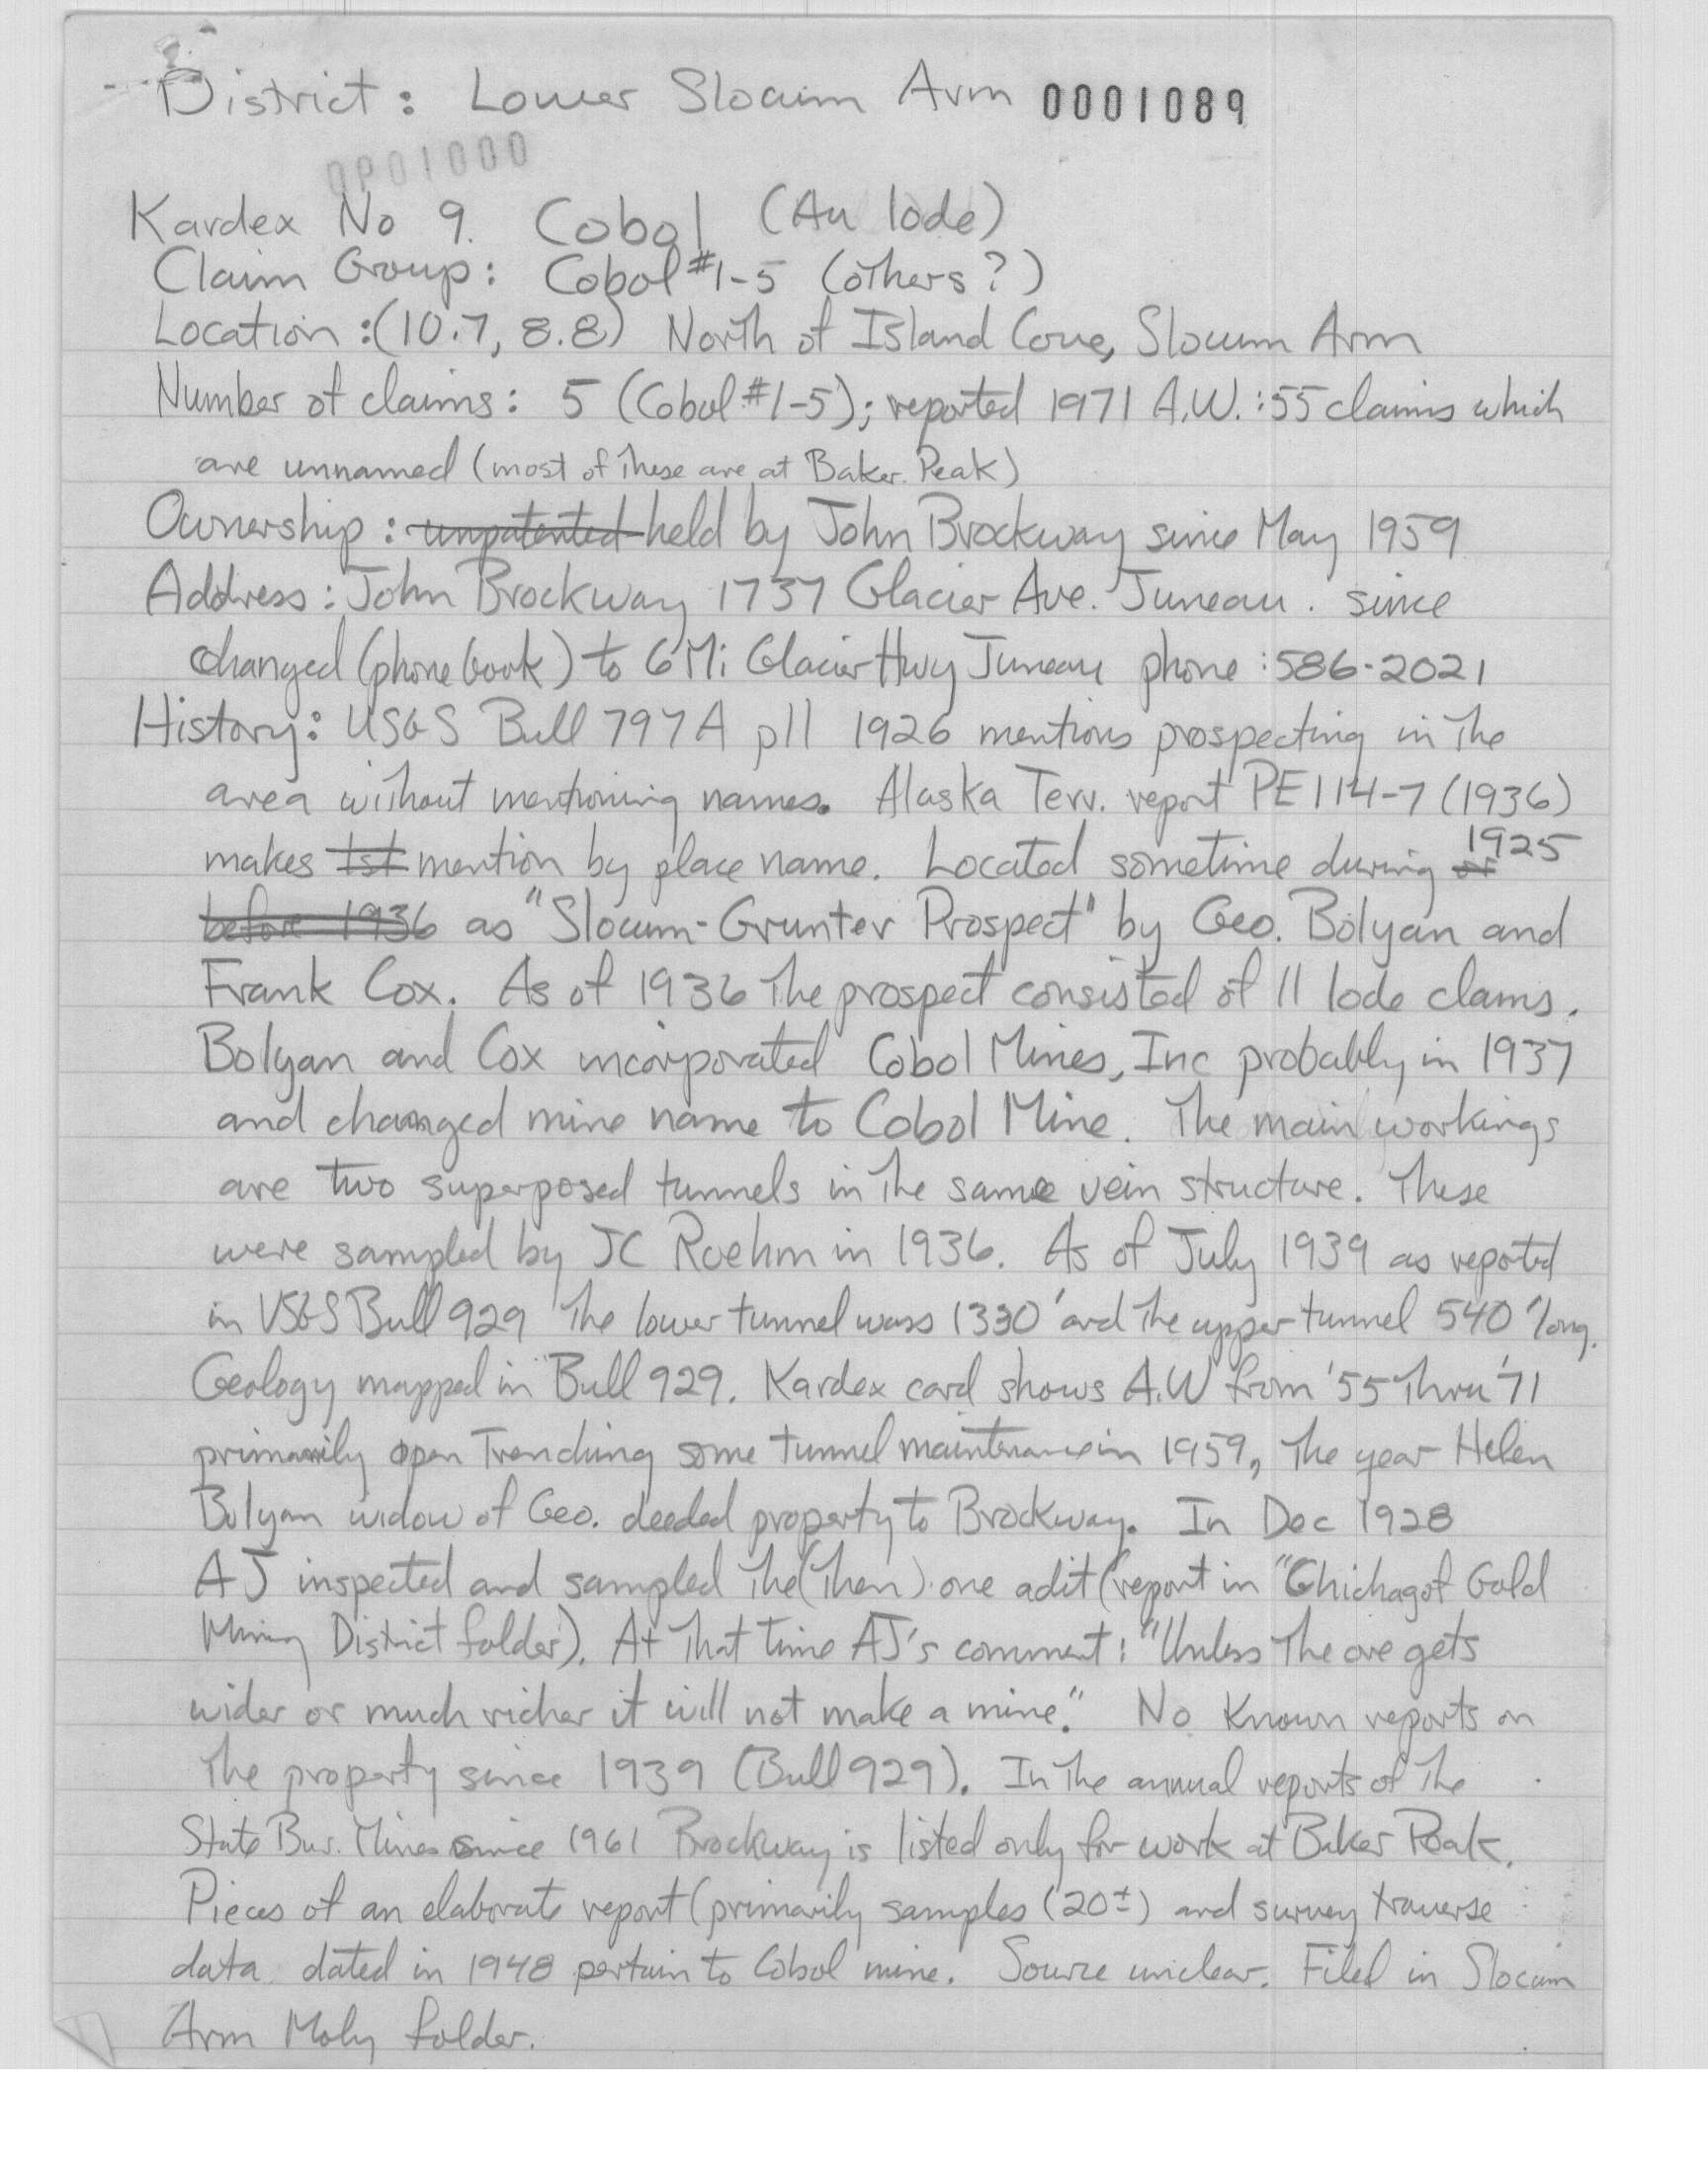 District: Lower Slocum Arm 0001089
0001000
Kardex No 9. Cobol (Au lode)
Claim Group: Cobol #1-5 (others?)
Location: (10.7, 8.8) North of Island Cove, Slocum Arm
Number of claims: 5 (Cobol #1-5); reported 1971 A.W.: 55 claims which
are unnamed (most of these are at Baker Peak)
Ownership: unpatented held by John Brockway since May 1959
Address: John Brockway 1737 Glacier Ave. Juneau. since
changed (phone book) to 6 Mi Glacier Hwy Juneau phone: 586-2021
History: USGS Bull 797A p11 1926 mentions prospecting in the
area without mentioning names. Alaska Terr. report PE 114-7 (1936)
makes 1st mention by place name. Located sometime during or 1925
before 1936 as "Slocum-Grunter Prospect" by Geo. Bolyan and
Frank Cox. As of 1936 the prospect consisted of 11 lode clams.
Bolyan and Cox incorporated Cobol Mines, Inc probably in 1937
and changed mine name to Cobol Mine. The main workings
are two superposed tunnels in the same vein structure. These
were sampled by JC Roehm in 1936. As of July 1939 as reported
in USGS Bull 929 the lower tunnel wass 1330' and the upper tunnel 540' long.
Geology mapped in Bull 929. Kardex card shows A.W from '55 thru '71
primarily open trenching some tunnel maintenance in 1959, the year Helen
Bolyan widow of Geo. deeded property to Brockway. In Dec 1928
AJ inspected and sampled the (then) one adit (report in "Chichagof Gold
Mining District folder). At that time AJ's comment: "Unless the ore gets
wider or much richer it will not make a mine." No known reports on
the property since 1939 (Bull 929). In the annual reports of the
State Bur. Mines since 1961 Brockway is listed only for work at Baker Peak.
Pieces of an elaborate report (primarily samples (20±) and survey traverse
data dated in 1948 pertain to Cobol mine. Source unclear. Filed in Slocum
Arm Moly folder.